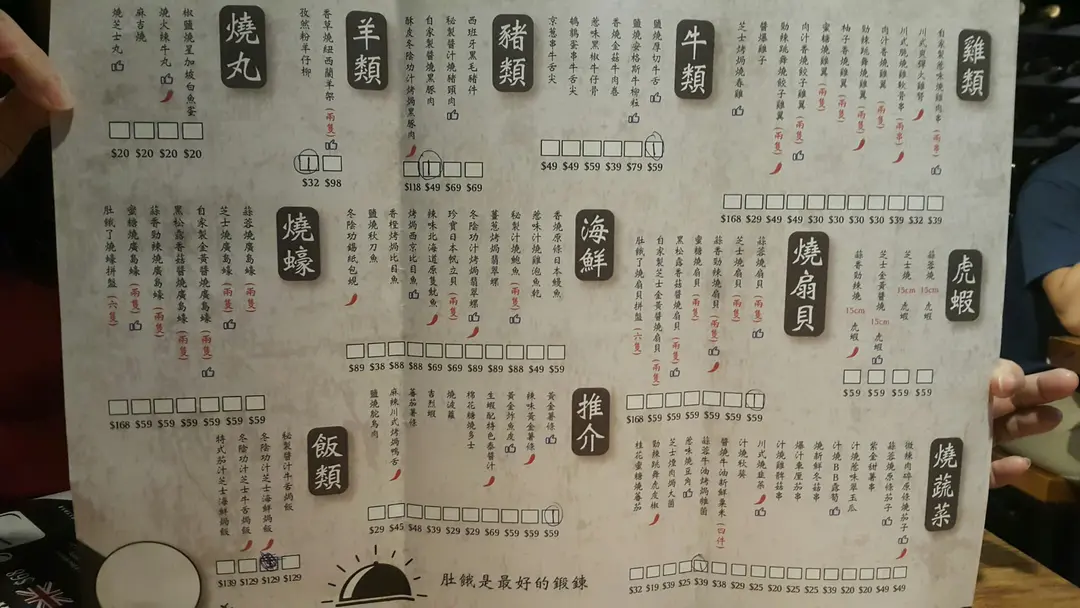 雞類
自家製惹味燒雞肉串 (兩串)
川式黑彈火雞腎
川式脆燒雞軟骨串 (兩串)
肉汁香燒雞翼 (兩隻)
勁辣跳舞燒雞翼 (兩隻)
柚子香燒雞翼 (兩隻)
蜜糖燒雞翼 (兩隻)
肉汁香燒餃子雞翼 (兩隻)
勁辣跳舞燒餃子雞翼 (兩隻)
醬爆雞子
芝士烤焗燒春雞
$168 $29 $49 $49 $30 $30 $30 $30 $39 $32 $39
牛類
鹽燒厚切牛舌
鹽燒安格斯牛柳粒
香燒金菇牛肉卷
惹味黑椒牛仔骨
鵪鶉蛋串牛舌尖
京葱串牛舌尖
$49 $49 $59 $39 $79 $59
豬類
西班牙黑毛豬件
秘製醬汁燒豬頸肉
自家製醬燒黑豚肉
酥皮冬陰功汁烤焗黑豚肉
$118 $49 $69 $69
羊類
香草燒紐西蘭羊架 (兩隻)
孜然粉羊仔柳
$32 $98
燒丸
椒鹽燒星加坡白魚蛋
燒火辣牛丸
麻吉燒
燒芝士丸
$20 $20 $20 $20
虎蝦
蒜蓉燒 15cm 虎蝦
芝士燒 15cm 虎蝦
芝士金黃醬燒 15cm 虎蝦
蒜香勁辣燒 15cm 虎蝦
$59 $59 $59 $59
燒扇貝
蒜蓉燒扇貝 (兩隻)
芝士燒扇貝 (兩隻)
蒜香勁辣燒扇貝 (兩隻)
蜜糖燒扇貝 (兩隻)
黑松露香菇醬燒扇貝 (兩隻)
自家製芝士金黃醬燒扇貝 (兩隻)
肚餓了燒扇貝拼盤 (六隻)
$168 $59 $59 $59 $59 $59 $59
海鮮
香燒原條日本鰻魚
惹味汁燒雞泡魚乾
秘製汁燒鮑魚 (兩隻)
薑葱烤焗翡翠螺
冬陰功汁烤焗翡翠螺
珍寶日本帆立貝 (兩隻)
辣味北海道原隻魷魚
烤焗西京比目魚
香橙烤焗比目魚
鹽燒秋刀魚
冬陰功錫紙包蜆
$89 $38 $88 $88 $69 $69 $89 $88 $88 $49 $59
燒蠔
蒜蓉燒廣島蠔 (兩隻)
芝士燒廣島蠔 (兩隻)
自家製金黃醬燒廣島蠔 (兩隻)
黑松露香菇醬燒廣島蠔 (兩隻)
蒜香勁辣燒廣島蠔 (兩隻)
蜜糖燒廣島蠔 (兩隻)
肚餓了燒蠔拼盤 (六隻)
$168 $59 $59 $59 $59 $59 $59
燒蔬菜
微辣肉碎原條燒茄子
蒜蓉燒原條茄子
紫金甜薯串
汁燒惹味翠玉瓜
汁燒BB露荀
燒新鮮冬菇串
爆汁車厘茄串
汁燒雞髀菇串
川式燒韭菜
汁燒秋葵
醬燒牛油新鮮粟米 (四件)
蒜蓉牛油烤焗雜菌
惹味燒豆角
芝士煙肉焗大菌
勁辣跳舞虎皮椒
桂花蜜糖燒蕃茄
$32 $19 $39 $25 $39 $38 $29 $25 $20 $25 $35 $39 $20 $20 $49 $49
推介
黃金薯條
辣味黃金薯條
黃金炸魚皮
生蝦配特色泰醬汁
棉花糖燒多士
燒波蘿
吉烈蝦
蕃茄薯條
麻辣川式烤焗鴨舌
鹽燒鴕鳥肉
$29 $45 $48 $39 $29 $29 $69 $59 $59 $59
飯類
秘製醬汁牛舌焗飯
冬陰功汁芝士海鮮焗飯
冬陰功汁芝士牛舌焗飯
特式茄汁芝士海鮮焗飯
$139 $129 $129 $129
肚餓是最好的鍛鍊